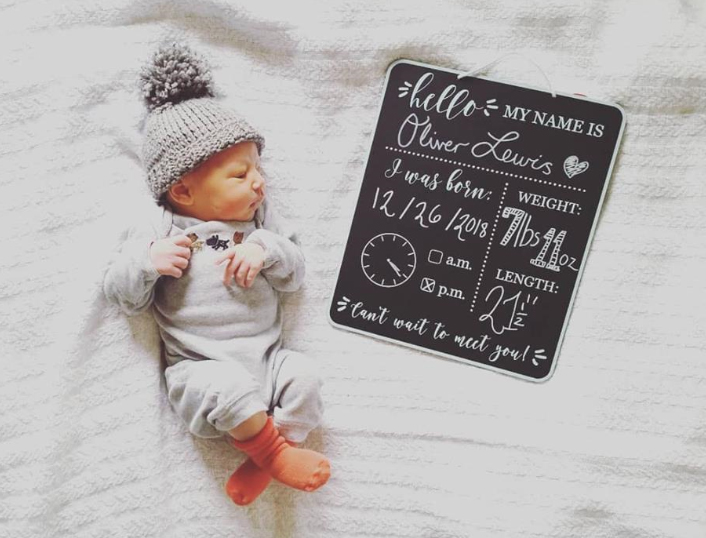 hello MY NAME IS
Oliver Lewis
I was born:
12/26/2018
a.m.
p.m.
WEIGHT:
7lbs 11oz
LENGTH:
21 1/2"
Can't wait to meet you!